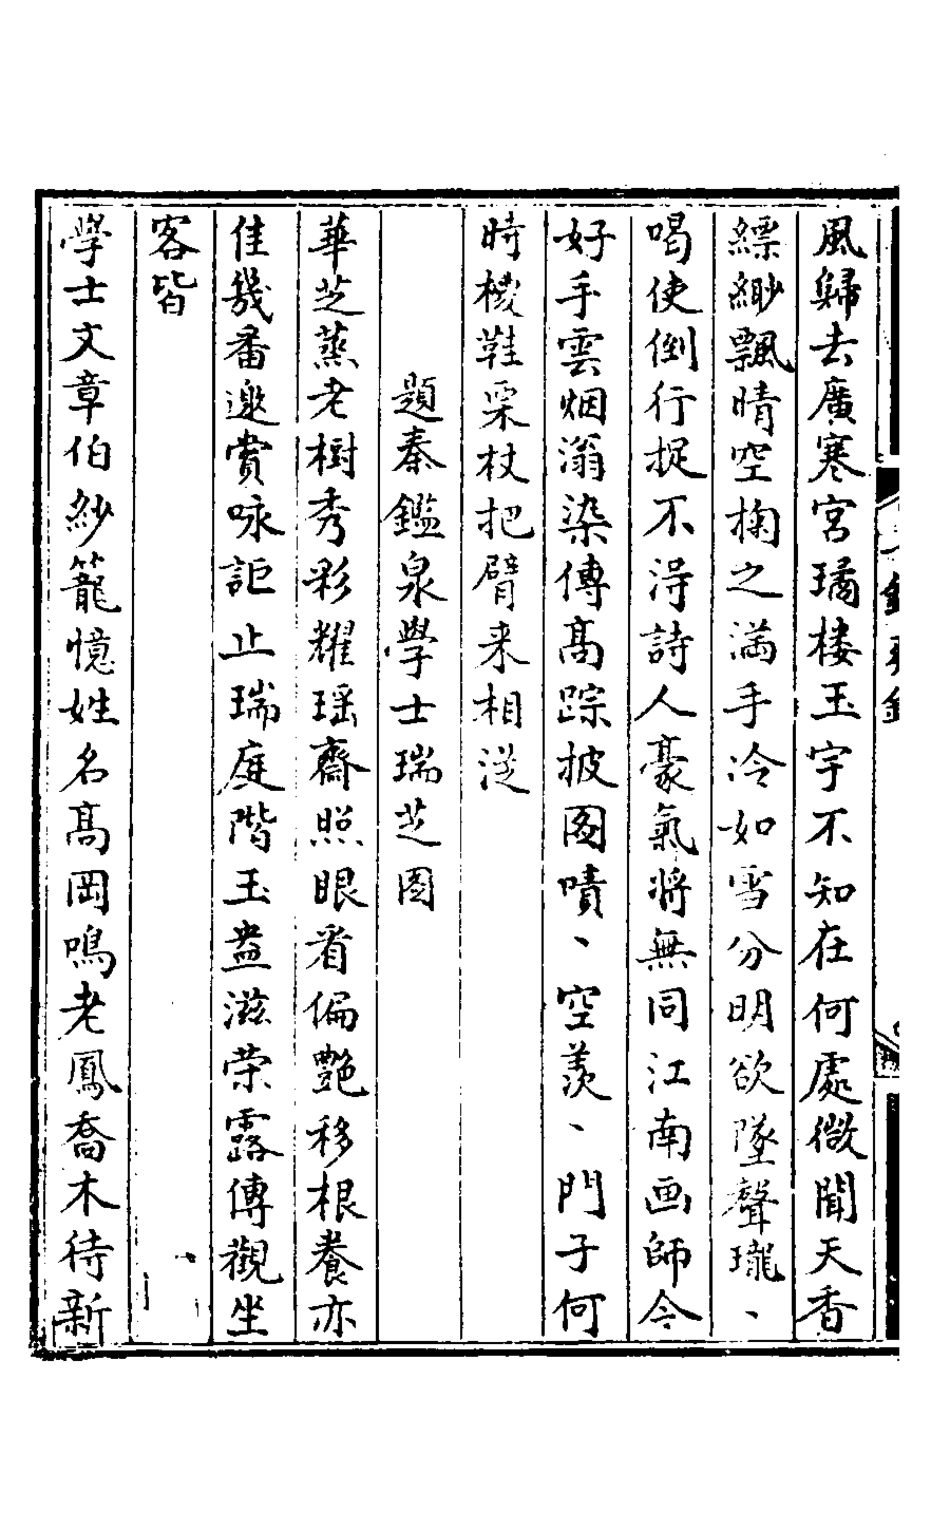 風歸去廣寒宮璚楼玉宇不知在何處微聞天香
縹緲飄晴空掬之滿手冷如雪分明欲墜聲瓏丶
喝使倒行捉不淂詩人豪氣將無同江南画師今
好手雲烟滃染傳髙踪披圖嘖丶空羨丶門子何
時椶鞋栗杖把臂来相従
題秦鑑泉學士瑞芝圖
華芝蒸老樹秀彩耀瑶齋照眼看偏艷移根養亦
佳幾番邀賞咏詎止瑞庭階玉盎滋荣露傳觀坐
客皆
學士文章伯紗籠憶姓名髙岡鳴老鳳喬木待新